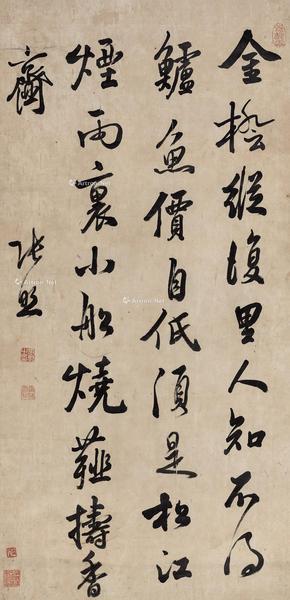 金橙縱復里人知不得
鱸魚價自低須是松江
煙雨裏小船燒薤擣香
齏
張照